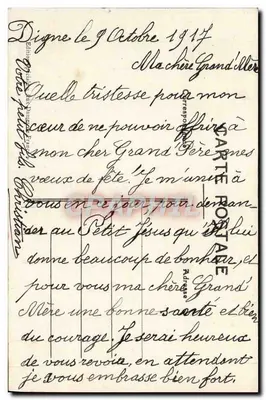 Digne le 9 Octobre 1917
Ma chère Grand'Mère
Quelle tristesse pour mon
cœur de ne pouvoir offrir à
mon cher Grand'Père mes
vœux de fête! Je m'unis à
vous en ce jour, pour deman-
der au Petit Jésus qu'il lui
donne beaucoup de bonheur, et
pour vous ma chère Grand'
Mère une bonne santé et bien
du courage. Je serai heureux
de vous revoir, en attendant
je vous embrasse bien fort.
Votre petit fils Christian
CARTE POSTALE
Correspondance
Adresse